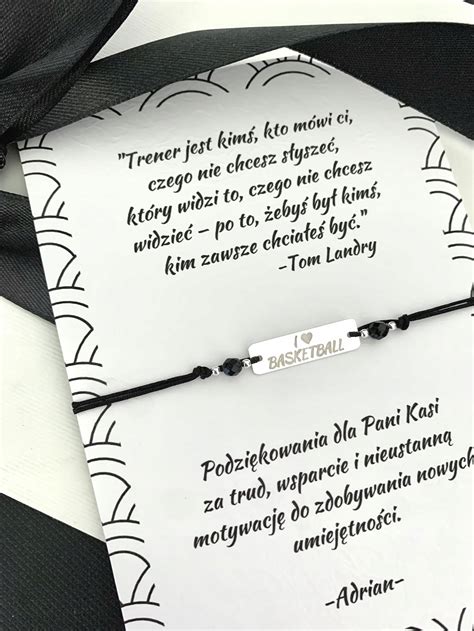 "Trener jest kimś, kto mówi ci,
czego nie chcesz słyszeć,
który widzi to, czego nie chcesz
widzieć – po to, żebyś był kimś,
kim zawsze chciałeś być."
-Tom Landry
I ♥
BASKETBALL
Podziękowania dla Pani Kasi
za trud, wsparcie i nieustanną
motywację do zdobywania nowych
umiejętności.
-Adrian-